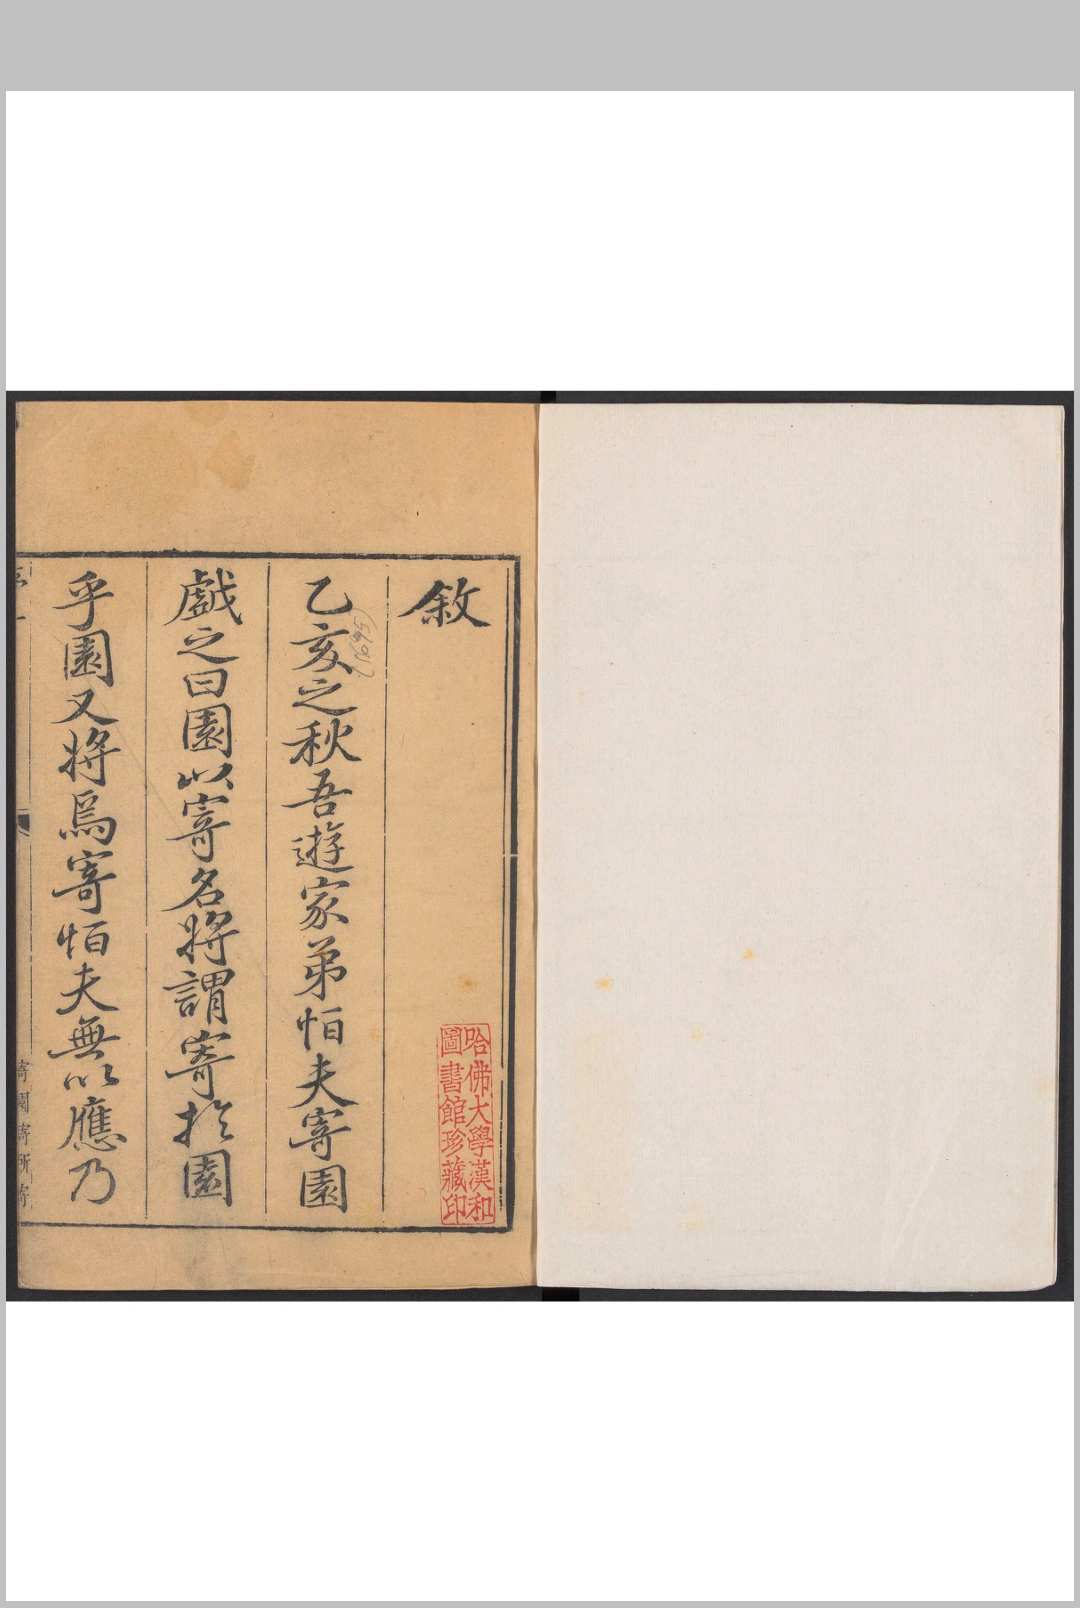 敘
乙亥之秋吾遊家弟怕夫寄園
(1695)
戲之曰園以寄名將謂寄扵園
乎園又將焉寄怕夫無以應乃
寄園寄所寄
哈佛大學漢和
圖書館珍藏印